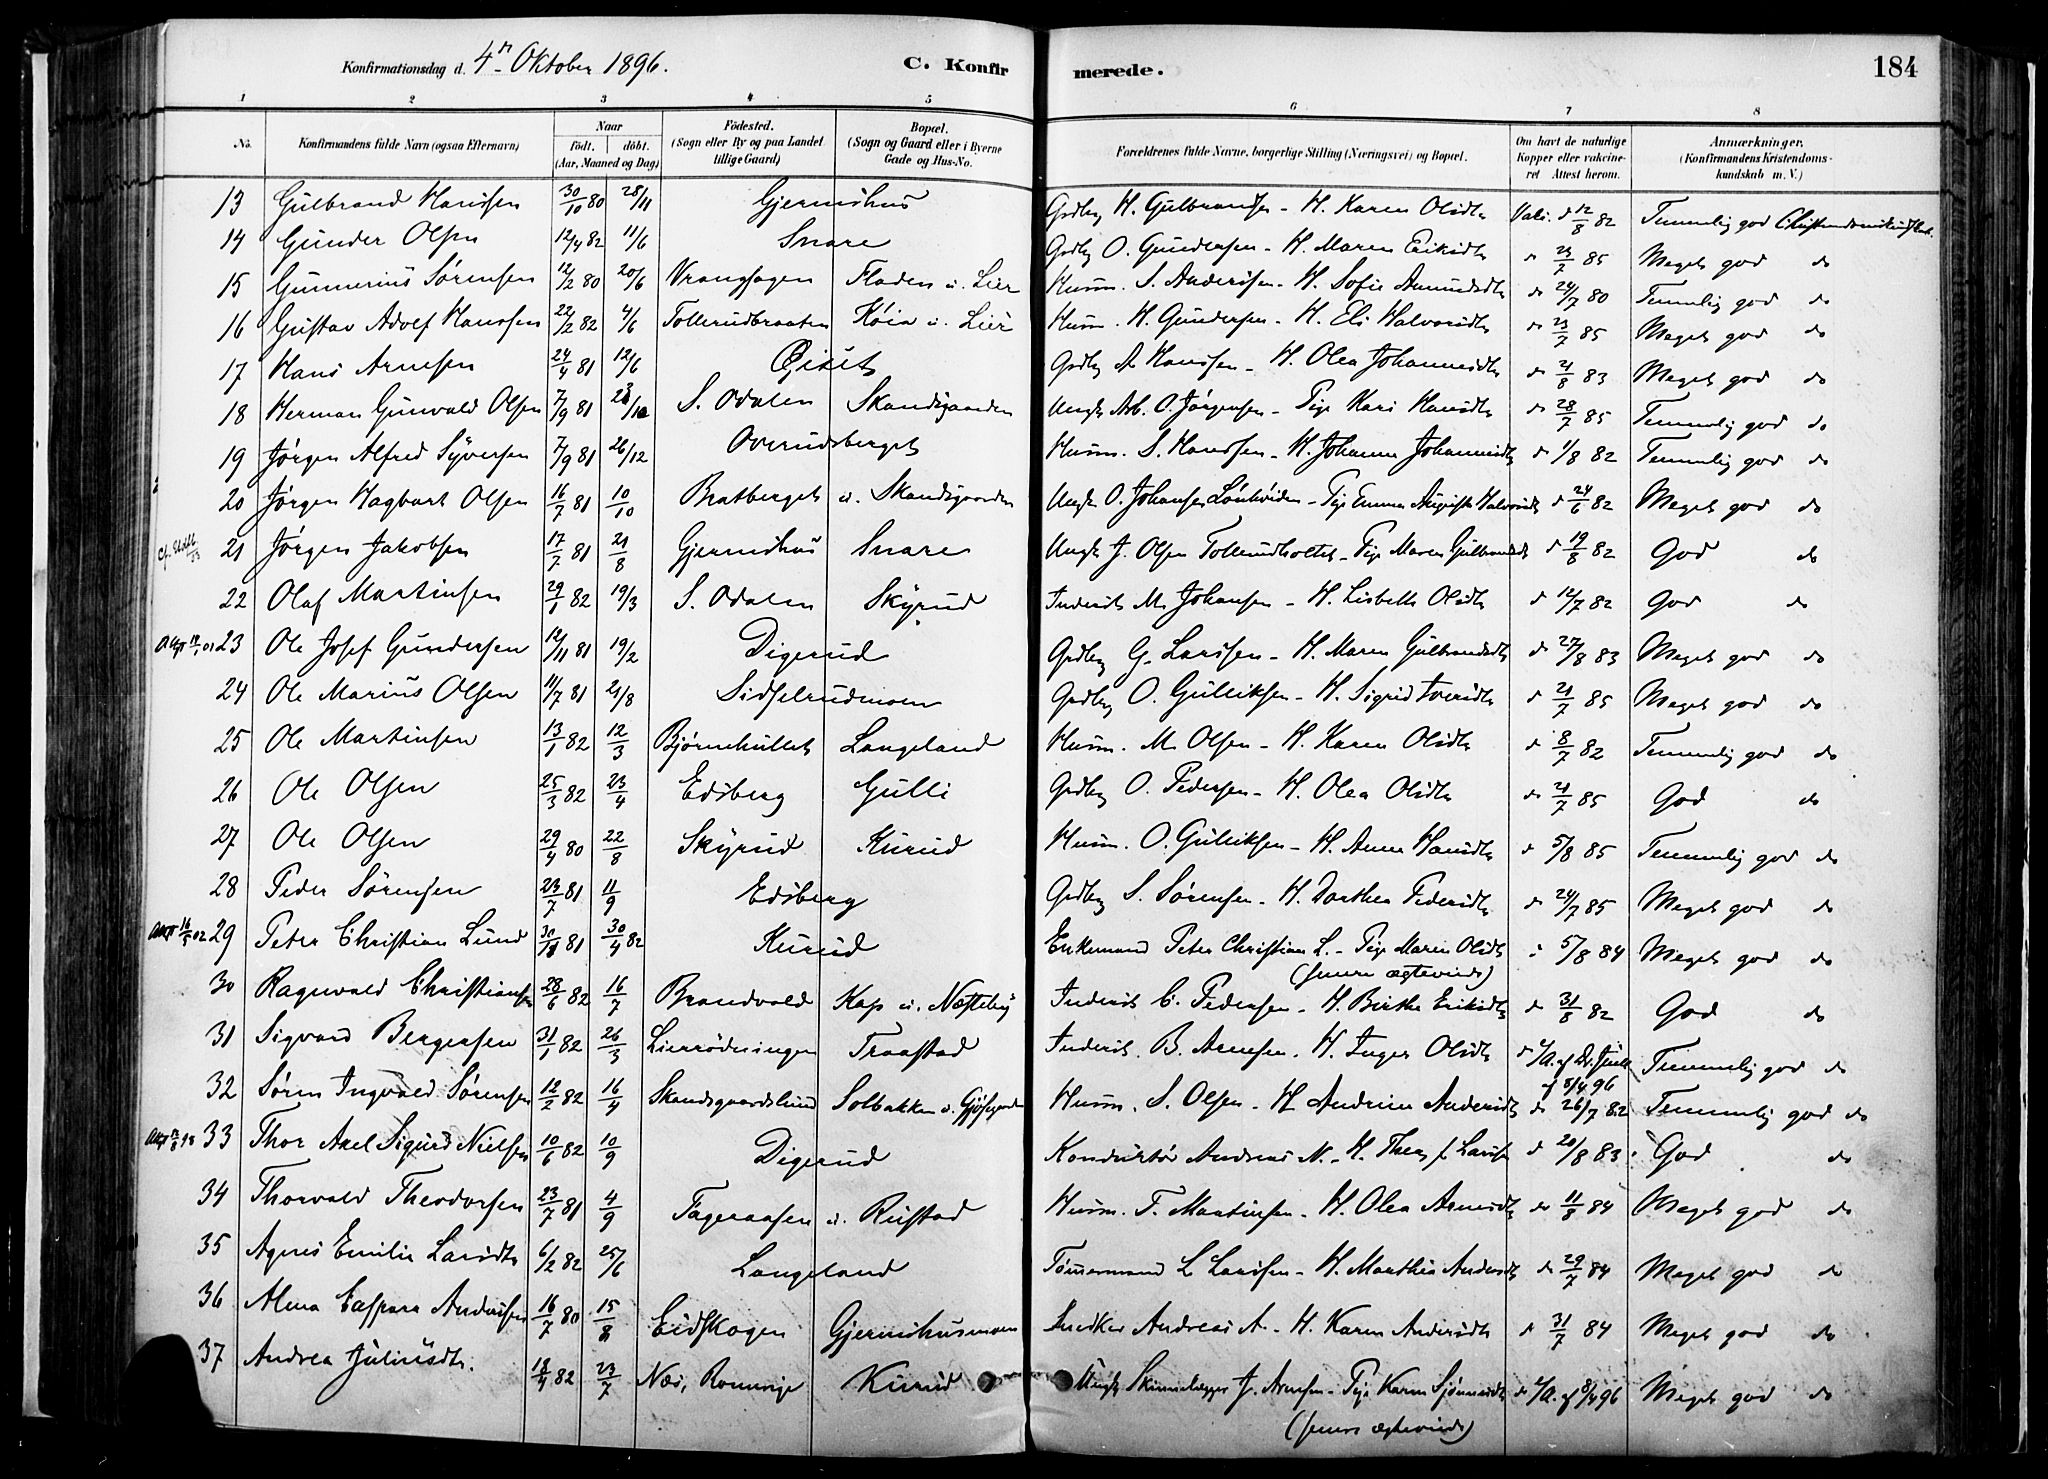 Konfirmationsdag d. 4de Oktober 1896. C. Konfirmerede. 184
1 2 3 4 5 6 7 8
No. Konfirmandens fulde Navn (ogsaa Efternavn) Naar født. døbt. (Aar, Maaned og Dag) Fødested. (Sogn eller By og paa Landet tillige Gaard) Bopæl. (Sogn og Gaard eller i Byerne Gade og Hus-No. Forældrenes fulde Navne, borgerlige Stilling (Næringsvei) og Bopæl. Om havt de naturlige Kopper eller vakcineret Attest herom. Anmærkninger. (Konfirmandens Kristendomskundskab m. V.)
13 Gulbrand Hansen 30/10 80 28/11 Gjermshus Grdbr H. Gulbrandsen - H. Karen Olsdtr Vakc. d 12/8 82 Temmelig god Christendomskundskab.
14 Gunder Olsen 12/4 82 11/6 Snare Grdbr O. Gundersen - H. Maren Eriksdtr d 23/7 85 Meget god do
15 Gunnerius Sørensen 12/2 80 20/6 Vranghagen Floden u. Lier Husm. S. Andersen - H. Sofie Amundsdtr do 24/7 80 Temmelig god do
16 Gustav Adolf Hansen 22/2 82 4/6 Tollerudbraaten Høia u. Lier Husm. H. Gundersen - H. Eli Halvorsdtr do 23/7 85 Meget god do
17 Hans Arnesen 24/4 81 12/6 Øiset Grdbr A Hansen - H. Olea Johannesdtr do 21/8 83 Meget god do
18 Herman Gunvald Olsen 7/9 81 S. Odalen Skandsgaarden Ungk. Arb. O. Jørgensen - Pige Kari Hansdtr do 28/7 85 Temmelig god do
19 Jørgen Alfred Syversen 7/9 81 26/12 Overudsberget Husm. S. Hansen - H. Johanne Johannesdtr d 1/8 82 Temmelig god do
20 Jørgen Hagbart Olsen 16/7 81 10/10 Bratberget u. Skandsgaarden Ungk. O. Johansen Lønhøiden - Pige Emma Augusta Halvorsdtr d 24/6 82 Meget god do
21 Jørgen Jakobsen 17/7 81 21/8 Gjermshus Snare Ungk J. Olsen Tollerudholtet - Pige Maren Gulbrandsdtr d 19/8 82 God do
22 Olaf Martinsen 29/1 82 19/3 S. Odalen Skyrud Inderst M. Johansen - H. Lisbeth Olsdtr d 14/7 82 God do
Att 23 Ole Josef Gundersen 12/11 81 19/2 Digerud Grdbr G. Larsen - H. Maren Gulbrandsdtr do 27/8 83 Meget god do
24 Ole Marius Olsen 11/7 81 21/8 Sidselrudmoen Grdbr O. Gulliksen - H. Sigrid Iversdtr do 21/7 85 Meget god do
25 Ole Martinsen 13/1 82 12/3 Bjørnehullet Langeland Husm. M. Olsen - H. Karen Olsdtr d 8/7 82 Temmelig god do
26 Ole Olsen 25/3 82 23/4 Edsberg Gulli Grdbr O. Pedersen - H. Olea Olsdtr do 21/7 85 God do
27 Ole Olsen 29/4 80 22/8 Skyrud Kurud Husm. O. Gulliksen - H. Anne Hansdtr d 5/8 85 Temmelig god do
28 Peder Sørensen 23/7 81 11/9 Edsberg Grdbr S. Sørensen - H. Dorthea Pedersdtr do 24/7 85 Meget god do
Att 29 Peter Christian Lund 81 30/4 82 Kurud Enkemand Peter Christian L. - Pige Maren Olsdtr 5/8 84 Meget god do
(senere ægteviede)
30 Ragnvald Christiansen 28/6 82 16/7 Brandvold Kap u. Næsteby Inderst C. Pedersen - H. Birthe Eriksdtr do 31/8 82 God do
31 Sigvard Bergersen 31/1 82 26/3 Lierrødningen Traastad Inderst. B. Arnesen. H. Inger Olsdtr 8/4 96 Temmelig god do
32 Søren Ingvald Sørensen 12/2 82 16/4 Skandsgaardslund Solbakken u. Gjøsegaarden Husm. S. Olsen - H Andrine Andersdtr do 26/7 82 Temmelig god do
Att 33 Thor Axel Sigurd Nielsen 10/6 82 10/9 Digerud Konduktør Andreas N. - H. Thea f. Larsen d 20/8 83 God do
34 Thorvald Theodorsen 23/7 81 4/9 Fageraasen u. Rustad Husm. T. Martinsen - H. Olea Arnesdtr do 11/8 84 Meget god do
35 Agnes Emilie Larsdtr 6/2 82 25/6 Langeland Tømmermand L Larsen - H. Marthea Andersdtr do 29/7 84 Meget god do
36 Alma Caspara Andersen 16/7 80 15/8 Eidskogen Gjermshusmoen Snedker Andreas A. - H. Karen Andersdtr d 31/7 84 Meget god do
37 Andrea Juliusdtr. 18/4 82 23/7 Næs, Romerige Kurud Ungk Skinnelægger J. Arnesen - Pige Karen do 8/4 96 Meget god do
(senere ægteviede)